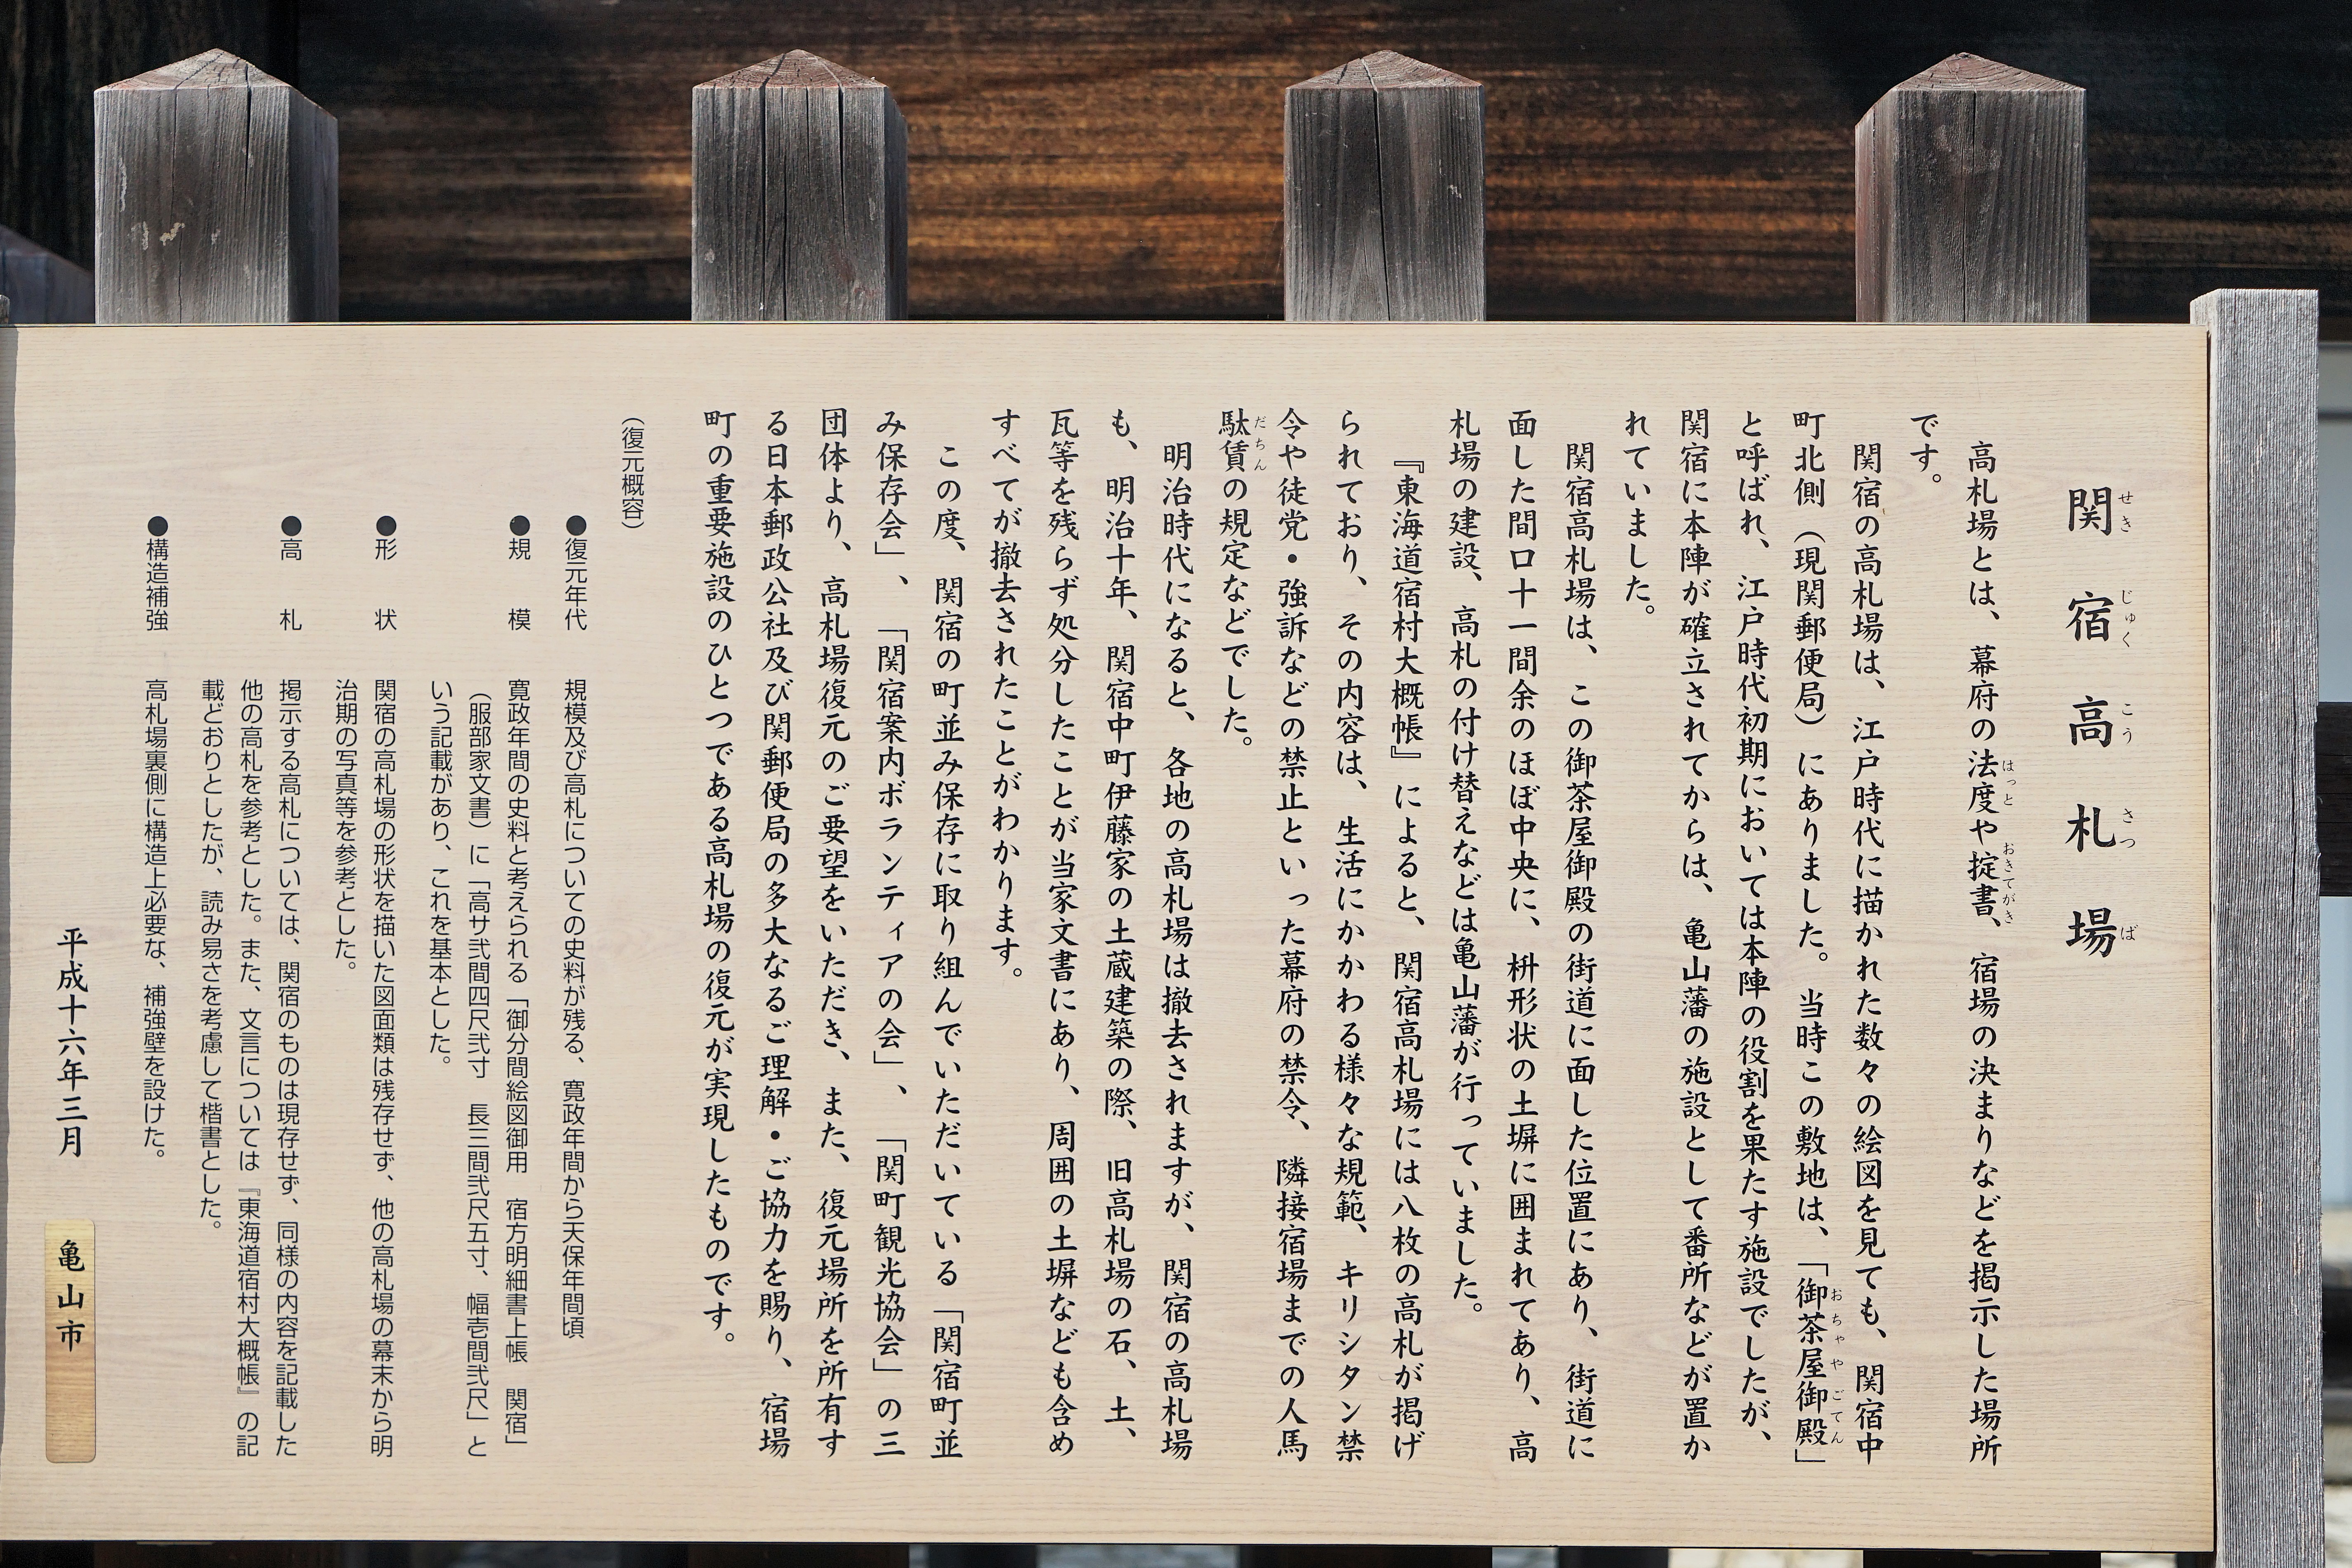 関宿高札場
せきじゅくこうさつば
高札場とは、幕府の法度や掟書、宿場の決まりなどを掲示した場所
はっと おきてがき
です。
関宿の高札場は、江戸時代に描かれた数々の絵図を見ても、関宿中
町北側（現関郵便局）にありました。当時この敷地は、「御茶屋御殿」
おちゃやごてん
と呼ばれ、江戸時代初期においては本陣の役割を果たす施設でしたが、
関宿に本陣が確立されてからは、亀山藩の施設として番所などが置か
れていました。
関宿高札場は、この御茶屋御殿の街道に面した位置にあり、街道に
面した間口十一間余のほぼ中央に、枡形状の土塀に囲まれてあり、高
札場の建設、高札の付け替えなどは亀山藩が行っていました。
『東海道宿村大概帳』によると、関宿高札場には八枚の高札が掲げ
られており、その内容は、生活にかかわる様々な規範、キリシタン禁
令や徒党・強訴などの禁止といった幕府の禁令、隣接宿場までの人馬
駄賃の規定などでした。
だちん
明治時代になると、各地の高札場は撤去されますが、関宿の高札場
も、明治十年、関宿中町伊藤家の土蔵建築の際、旧高札場の石、土、
瓦等を残らず処分したことが当家文書にあり、周囲の土塀なども含め
すべてが撤去されたことがわかります。
この度、関宿の町並み保存に取り組んでいただいている「関宿町並
み保存会」、「関宿案内ボランティアの会」、「関町観光協会」の三
団体より、高札場復元のご要望をいただき、また、復元場所を所有す
る日本郵政公社及び関郵便局の多大なるご理解・ご協力を賜り、宿場
町の重要施設のひとつである高札場の復元が実現したものです。
（復元概容）
●復元年代 規模及び高札についての史料が残る、寛政年間から天保年間頃
●規 模 寛政年間の史料と考えられる「御分間絵図御用 宿方明細書上帳 関宿」
（服部家文書）に「高サ弐間四尺弐寸 長三間弐尺五寸、幅壱間弐尺」と
いう記載があり、これを基本とした。
●形 状 関宿の高札場の形状を描いた図面類は残存せず、他の高札場の幕末から明
治期の写真等を参考とした。
●高 札 掲示する高札については、関宿のものは現存せず、同様の内容を記載した
他の高札を参考とした。また、文言については『東海道宿村大概帳』の記
載どおりとしたが、読み易さを考慮して楷書とした。
●構造補強 高札場裏側に構造上必要な、補強壁を設けた。
平成十六年三月 亀山市